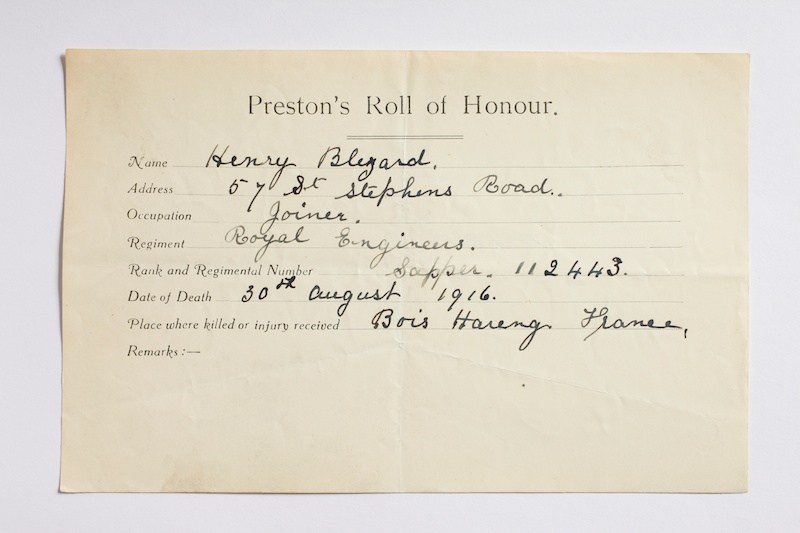 Preston's Roll of Honour.
Name Henry Blezard.
Address 57 St Stephens Road.
Occupation Joiner.
Regiment Royal Engineers.
Rank and Regimental Number Sapper. 112443.
Date of Death 30th August 1916.
Place where killed or injury received Bois Hareng France,
Remarks :—